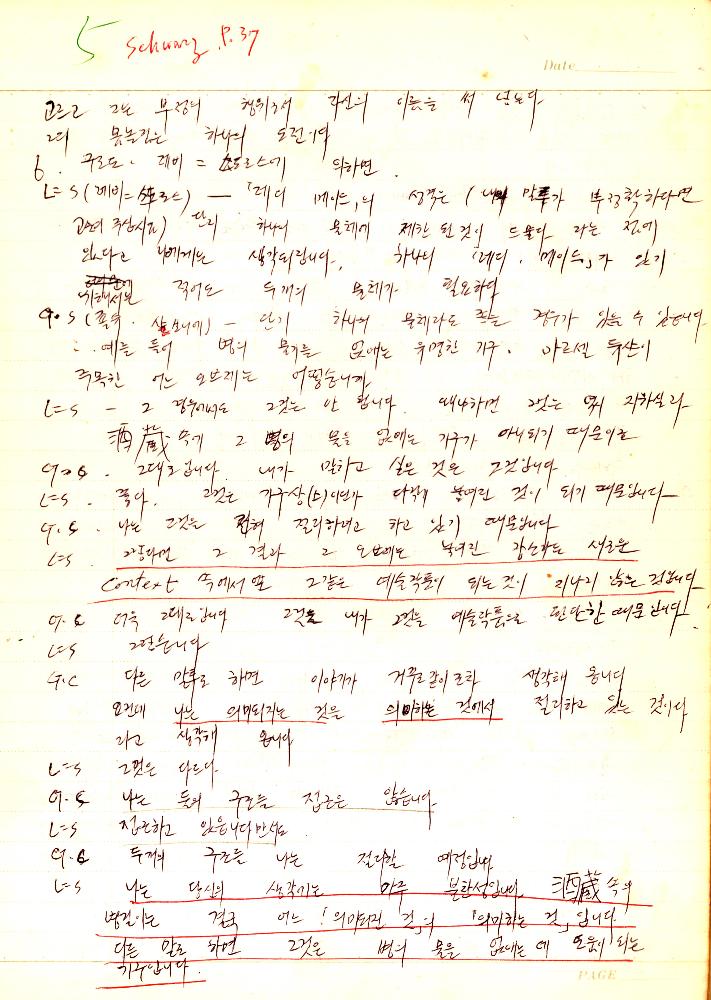 5 Schwarz P.37
Date
고르고 그는 부정의 행위로서 자신의 이름을 써 넣는다
그의 몸놀림은 하나의 도전이다
6. 구로드·레비=스트로스에 의하면.
L=S (레비=스트로스) — 「레디 메이드」의 성격은 (내 말투가 부정확하다면
고쳐 주십시요) 단지 하나의 물체에 제한된 것이 드물다 라는 점에
있다고 나에게는 생각되어집니다. 하나의 「레디·메이드」가 있기
위해서는 적어도 두개의 물체가 필요하다
G·S ( 샬보니에) — 단지 하나의 물체라도 되는 경우가 있을 수 있습니다
예를 들어 병의 물기를 없애는 유명한 가구. 마르셀 뒤샹이
주목한 어느 오브제는 어떻습니까
L=S — 그 경우에도 그것은 안 됩니다. 왜냐하면 그것은 지하실의
酒蔵 속에 그 병의 물을 없애는 가구가 아니되기 때문이오
G·S. 그대로입니다. 내가 말하고 싶은 것은 그것입니다
L=S. 좋다. 그것은 가구상(소)이던가 놓여진 것이 되기 때문입니다
G.S. 나는 그것을 전혀 정리하려고 하고 있기 때문입니다
L=S. 그렇다면 그 결과 그 오브제는 놓여진 장소라는 새로운
Context 속에서 또 그같은 예술작품이 되는 것에 지나지 않는 것입니다
G.S 더욱 그대로입니다 그것을 내가 그것을 예술작품으로 판단한 때문입니다
L=S 그렇습니다
G.C 다른 말투로 하면 이야기가 거꾸로같이 된다 생각해 옵니다
요컨대 나는 의미되지는 것을 의미하는 것에서 정리하고 있는 것이다
라고 생각해 옵니다
L=S 그것은 다르다.
G.S 나는 둘의 구조를 접근은 않습니다
L=S 접근하고 있읍니다만서도
G.S 두개의 구조를 나는 절다할 예정입니다
L=S 나는 당신의 생각에는 아주 불찬성입니다. 酒蔵 속의
병걸이는 결국 어느 「의미되진 것」의 「의미하는 것」입니다
다른 말로 하면 그것은 병의 물을 없애는 데 도움이 되는
기구입니다.
PAGE